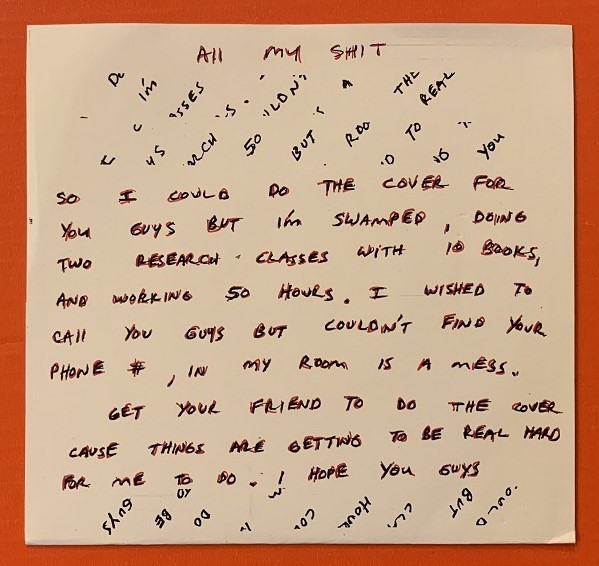 All MY SHIT
I'm THE
REAL
50 BUT A TO YOU
SO I COULD DO THE COVER FOR
YOU GUYS BUT I'M SWAMPED, DOING
TWO RESEARCH CLASSES WITH 10 BOOKS,
AND WORKING 50 HOURS. I WISHED TO
CAll YOU GUYS BUT COULDN'T FIND YOUR
PHONE #, IN MY ROOM IS A MESS.
GET YOUR FRIEND TO DO THE COVER
CAUSE THINGS ARE GETTING TO BE REAL HARD
FOR ME TO DO. I HOPE YOU GUYS
GUYS BE DO BUT